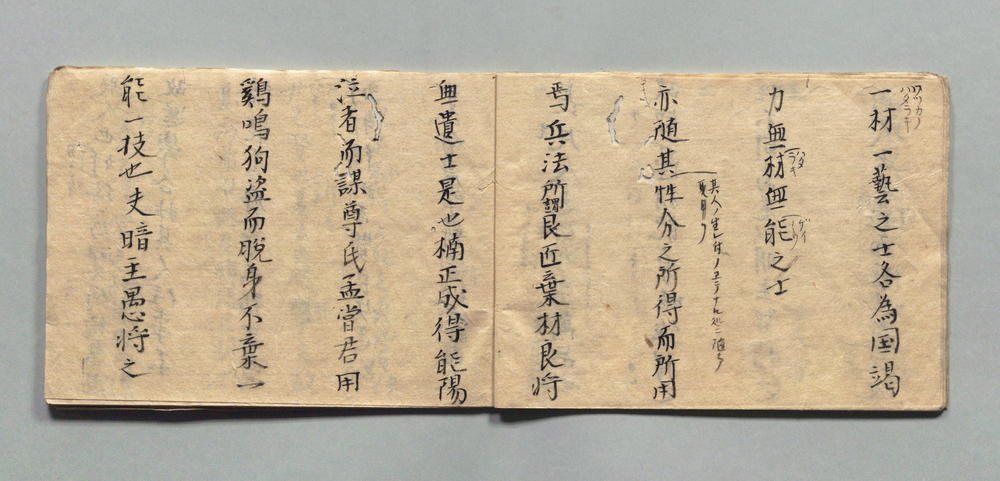 一材一藝之士各為国竭
力無一材無一能之士
亦随其性分之所得而所用
焉兵法所謂良匠棄材良将
無遺士是也楠正成得能陽
泣者而謀尊氏孟嘗君用
鶏鳴狗盗而脱身不棄一
能一技也夫暗主愚将之